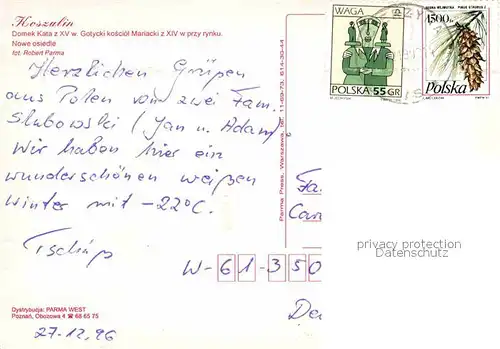 Koszalin
Domek Kata z XV w. Gotycki kościół Mariacki z XIV w przy rynku.
Nowe osiedle
fot. Robert Parma
Herzlichen Grüpen
aus Polen von zwei Fam.
Slubowski (Jan u. Adam)
Wir haben hier ein
wunderschönen weißen
Winter mit -22°C.
Tschüß
27.12.96
Dystrybucja: PARMA WEST
Poznań, Obozowa 4 ☎ 68 65 75
Parma Press, Warszawa, tel.
WAGA
POLSKA 55 GR
1500 zł
Polska
Fa
W-61-350
privacy protection
Datenschutz